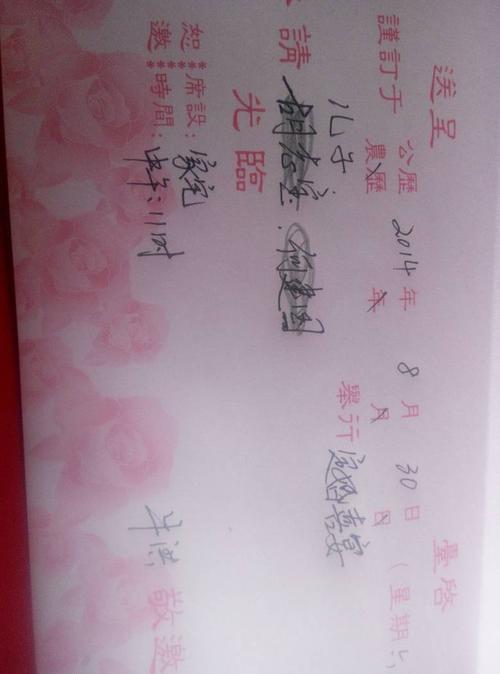 送呈 臺啓
謹訂于 公歷 2014年 8月 30日(星期六)
農歷 年 月 日
舉行 定婚喜宴
儿子 何建国
請
光臨
恕邀
席設:家宅
時間:中午:11时
敬邀